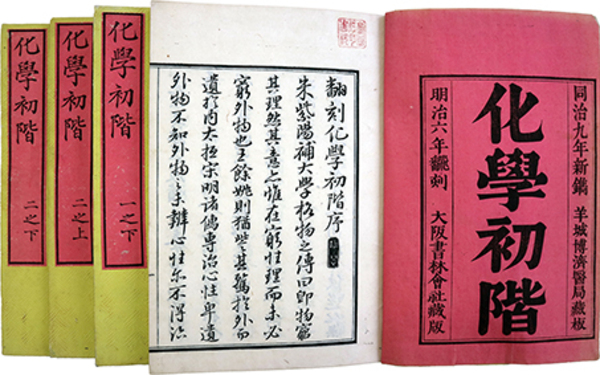 同治九年新鐫 羊城博濟醫局藏板
化學初階
明治六年飜刻 大阪書林會社藏版
翻刻化學初階序
朱紫陽補大學格物之傳曰即物窮
其理然其意亦惟在窮性理而未必
窮外物也王餘姚則猶訾其篤於外而
遺於内大抵宋明諸儒專治心性卑遺
外物不知外物之未辨心性亦不得治
化學初階 一之下
化學初階 二之上
化學初階 二之下